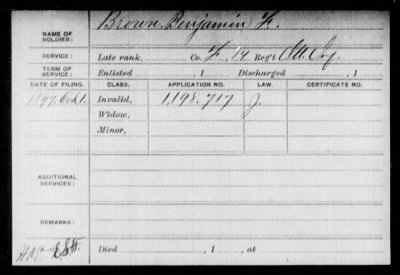 Brown, Benjamin F.
NAME OF SOLDIER:
SERVICE: Late rank, Co. F, 14 Reg't
TERM OF SERVICE: Enlisted , 1 Discharged , 1
DATE OF FILING. CLASS. APPLICATION NO. LAW. CERTIFICATE NO.
1897. Oct 1. Invalid, 1,198,717 J.
Widow,
Minor,
ADDITIONAL SERVICES:
REMARKS:
Died , 1 , at